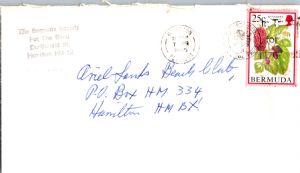 The Bermuda Society
For The Blind
Hamilton HM 12
25c
BERMUDA
Ariel Sands Beach Club,
P.O. Box HM 334
Hamilton HM BX